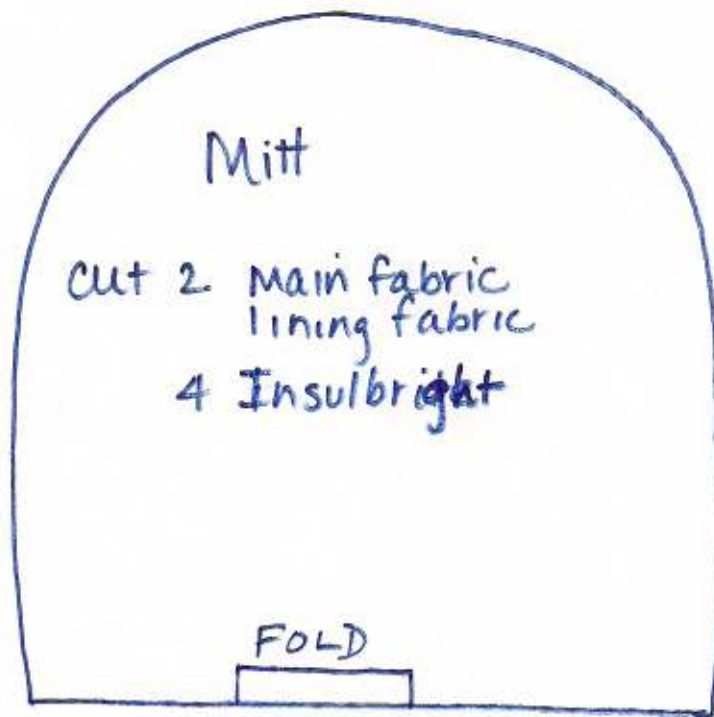 Mitt
cut 2 main fabric
lining fabric
4 Insulbright
FOLD